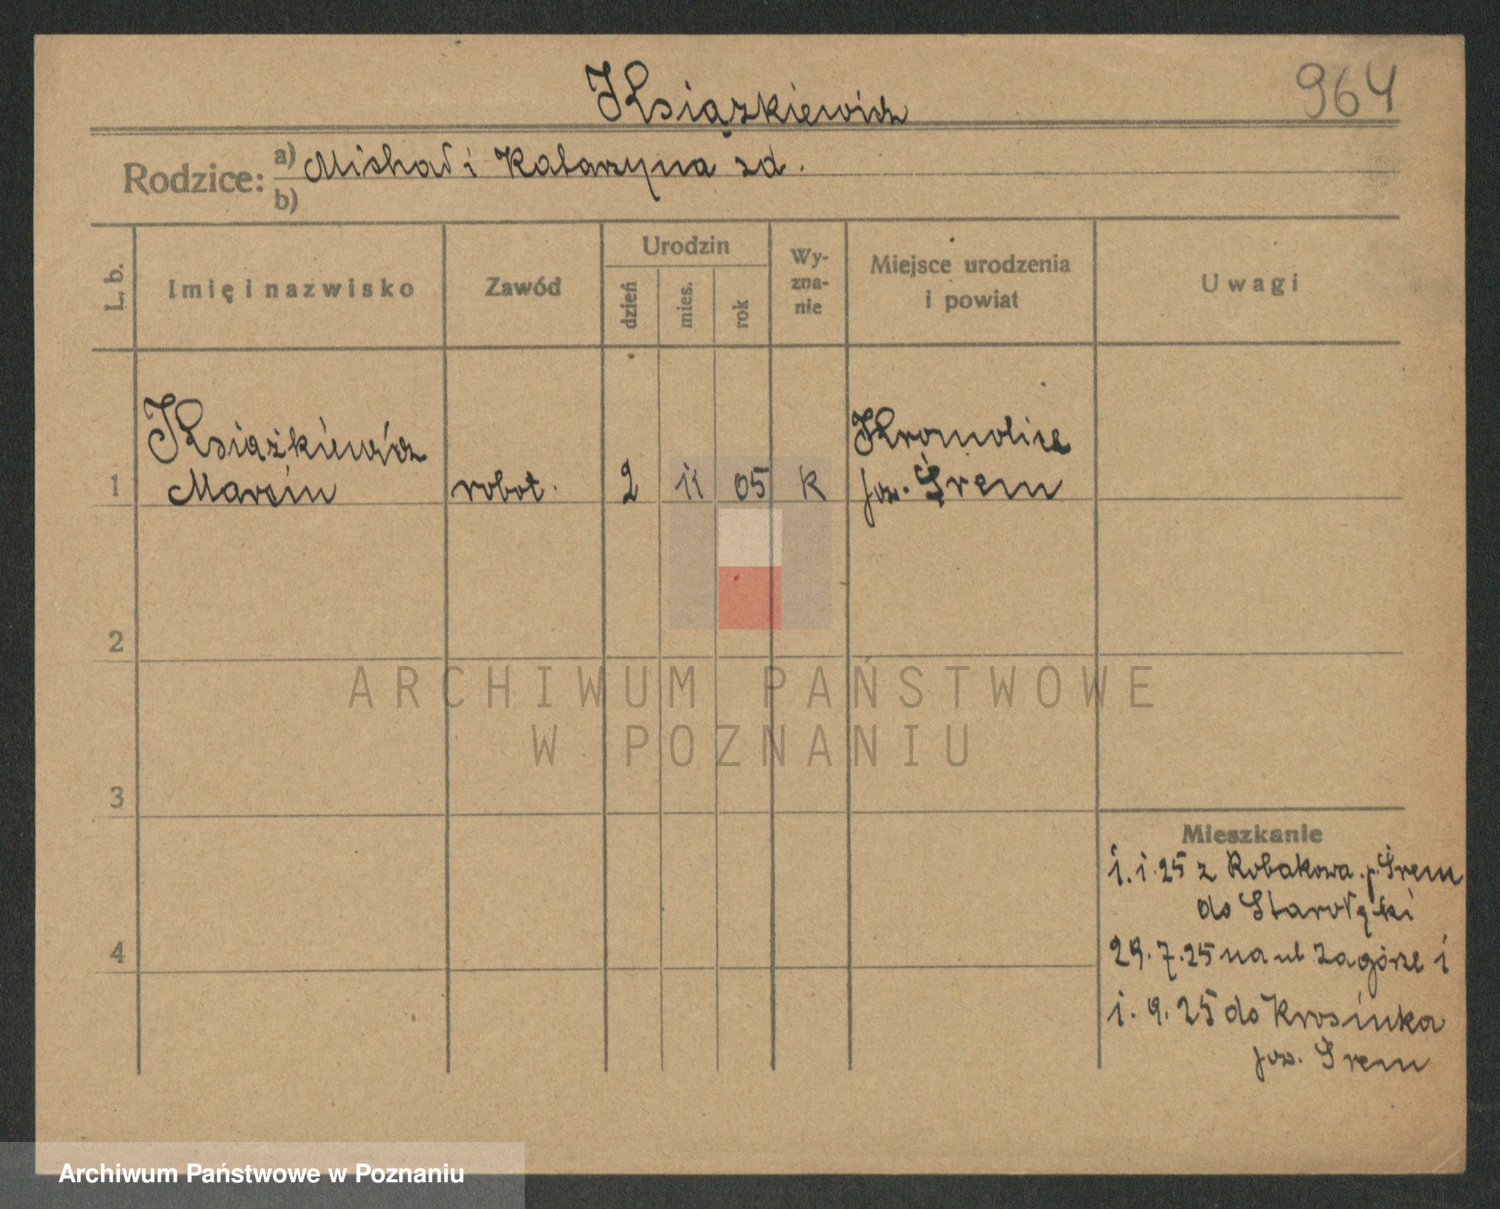 Książkiewicz
964
Rodzice: a) Michał i Katarzyna zd.
b)
L. b.
Imię i nazwisko
Zawód
Urodzin
dzień
mies.
rok
Wy-
zna-
nie
Miejsce urodzenia
i powiat
Uwagi
Książkiewicz
Kromolice
1 Marcin robot. 2 11 05 K pow. Śrem
2
3
4
Mieszkanie
1.1.25 z Robakowa p. Śrem
do Starołęki
29.7.25 na ul Zagórze 1
1.9.25 do Krosinka
pow. Śrem
ARCHIWUM PAŃSTWOWE
W POZNANIU
Archiwum Państwowe w Poznaniu